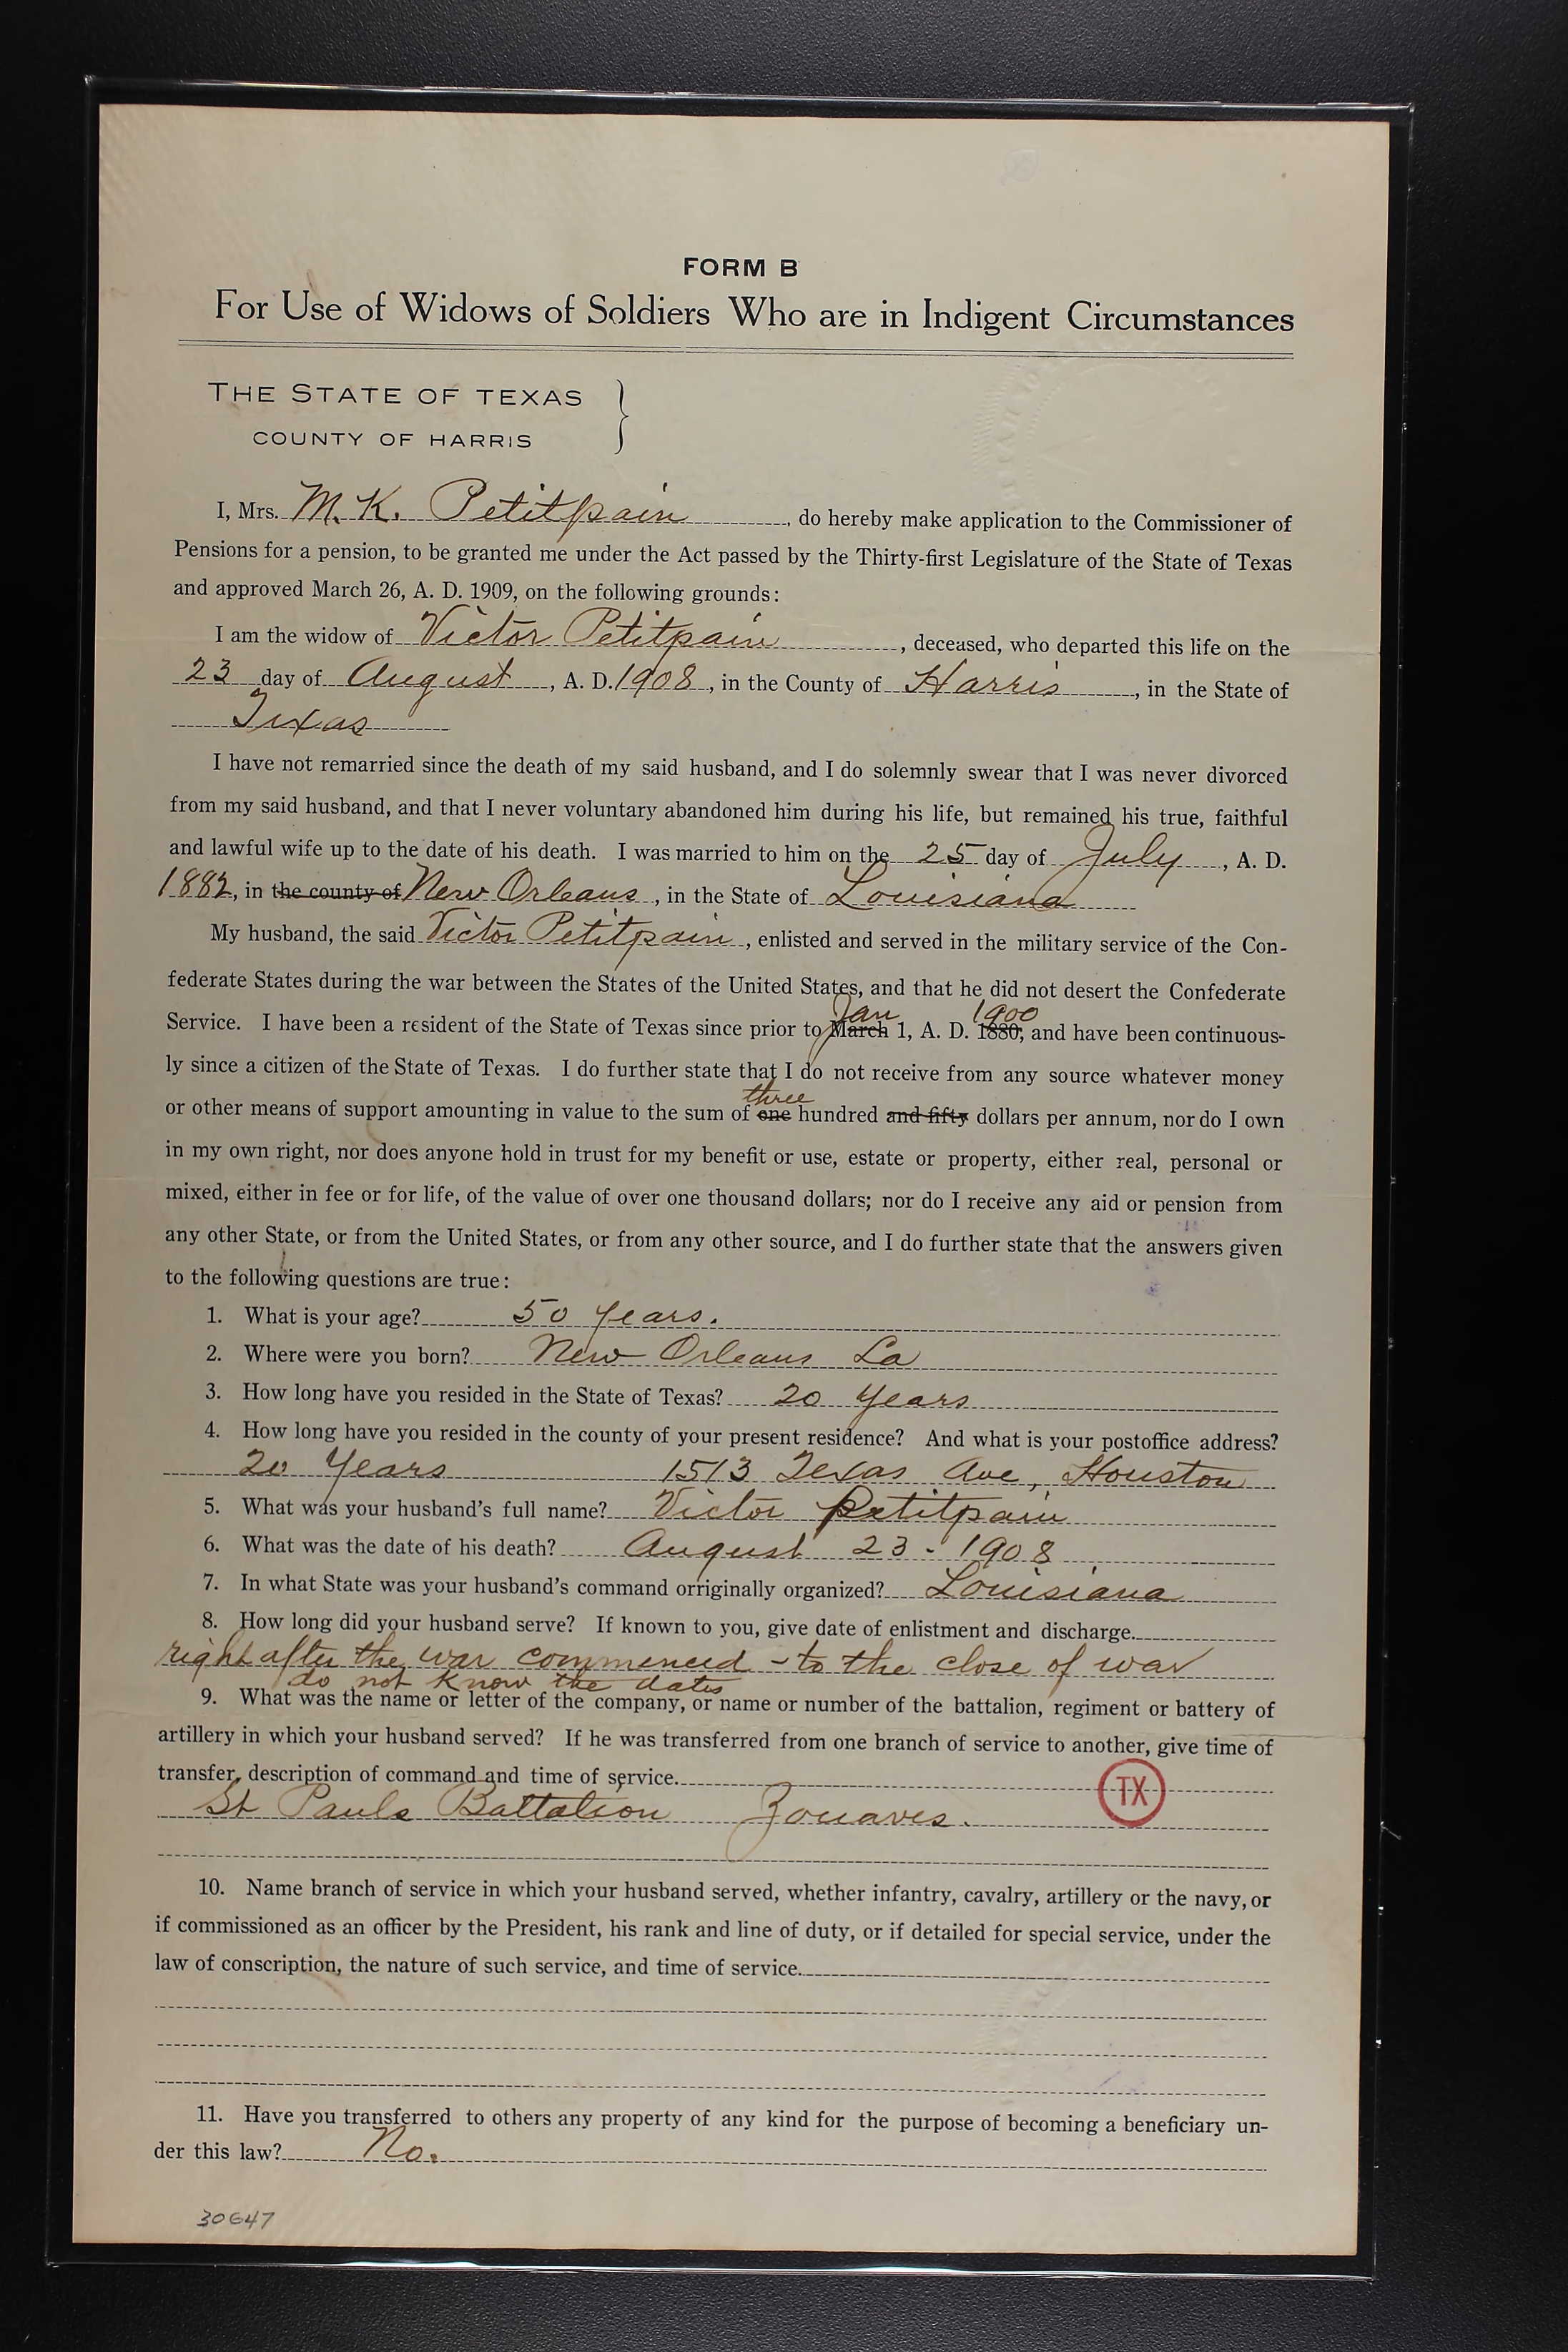 FORM B
For Use of Widows of Soldiers Who are in Indigent Circumstances
THE STATE OF TEXAS }
COUNTY OF HARRIS
I, Mrs. M. K. Petitpain, do hereby make application to the Commissioner of
Pensions for a pension, to be granted me under the Act passed by the Thirty-first Legislature of the State of Texas
and approved March 26, A. D. 1909, on the following grounds:
I am the widow of Victor Petitpain, deceased, who departed this life on the
23 day of August, A. D. 1908, in the County of Harris, in the State of
Texas
I have not remarried since the death of my said husband, and I do solemnly swear that I was never divorced
from my said husband, and that I never voluntary abandoned him during his life, but remained his true, faithful
and lawful wife up to the date of his death. I was married to him on the 25 day of July, A. D.
1882, in the county of New Orleans, in the State of Louisiana
My husband, the said Victor Petitpain, enlisted and served in the military service of the Con-
federate States during the war between the States of the United States, and that he did not desert the Confederate
Jan 1900
Service. I have been a resident of the State of Texas since prior to March 1, A. D. 1880, and have been continuous-
ly since a citizen of the State of Texas. I do further state that I do not receive from any source whatever money
three
or other means of support amounting in value to the sum of one hundred and fifty dollars per annum, nor do I own
in my own right, nor does anyone hold in trust for my benefit or use, estate or property, either real, personal or
mixed, either in fee or for life, of the value of over one thousand dollars; nor do I receive any aid or pension from
any other State, or from the United States, or from any other source, and I do further state that the answers given
to the following questions are true:
1. What is your age? 50 years.
2. Where were you born? New Orleans La
3. How long have you resided in the State of Texas? 20 Years
4. How long have you resided in the county of your present residence? And what is your postoffice address?
20 Years 1513 Texas Ave, Houston
5. What was your husband's full name? Victor Petitpain
6. What was the date of his death? August 23 - 1908
7. In what State was your husband's command orriginally organized? Louisiana
8. How long did your husband serve? If known to you, give date of enlistment and discharge.
right after the war commenced - to the close of war
do not know the dates
9. What was the name or letter of the company, or name or number of the battalion, regiment or battery of
artillery in which your husband served? If he was transferred from one branch of service to another, give time of
transfer, description of command and time of service.
TX
St Pauls Battalion Zouaves.
10. Name branch of service in which your husband served, whether infantry, cavalry, artillery or the navy, or
if commissioned as an officer by the President, his rank and line of duty, or if detailed for special service, under the
law of conscription, the nature of such service, and time of service.
11. Have you transferred to others any property of any kind for the purpose of becoming a beneficiary un-
der this law? No.
30647